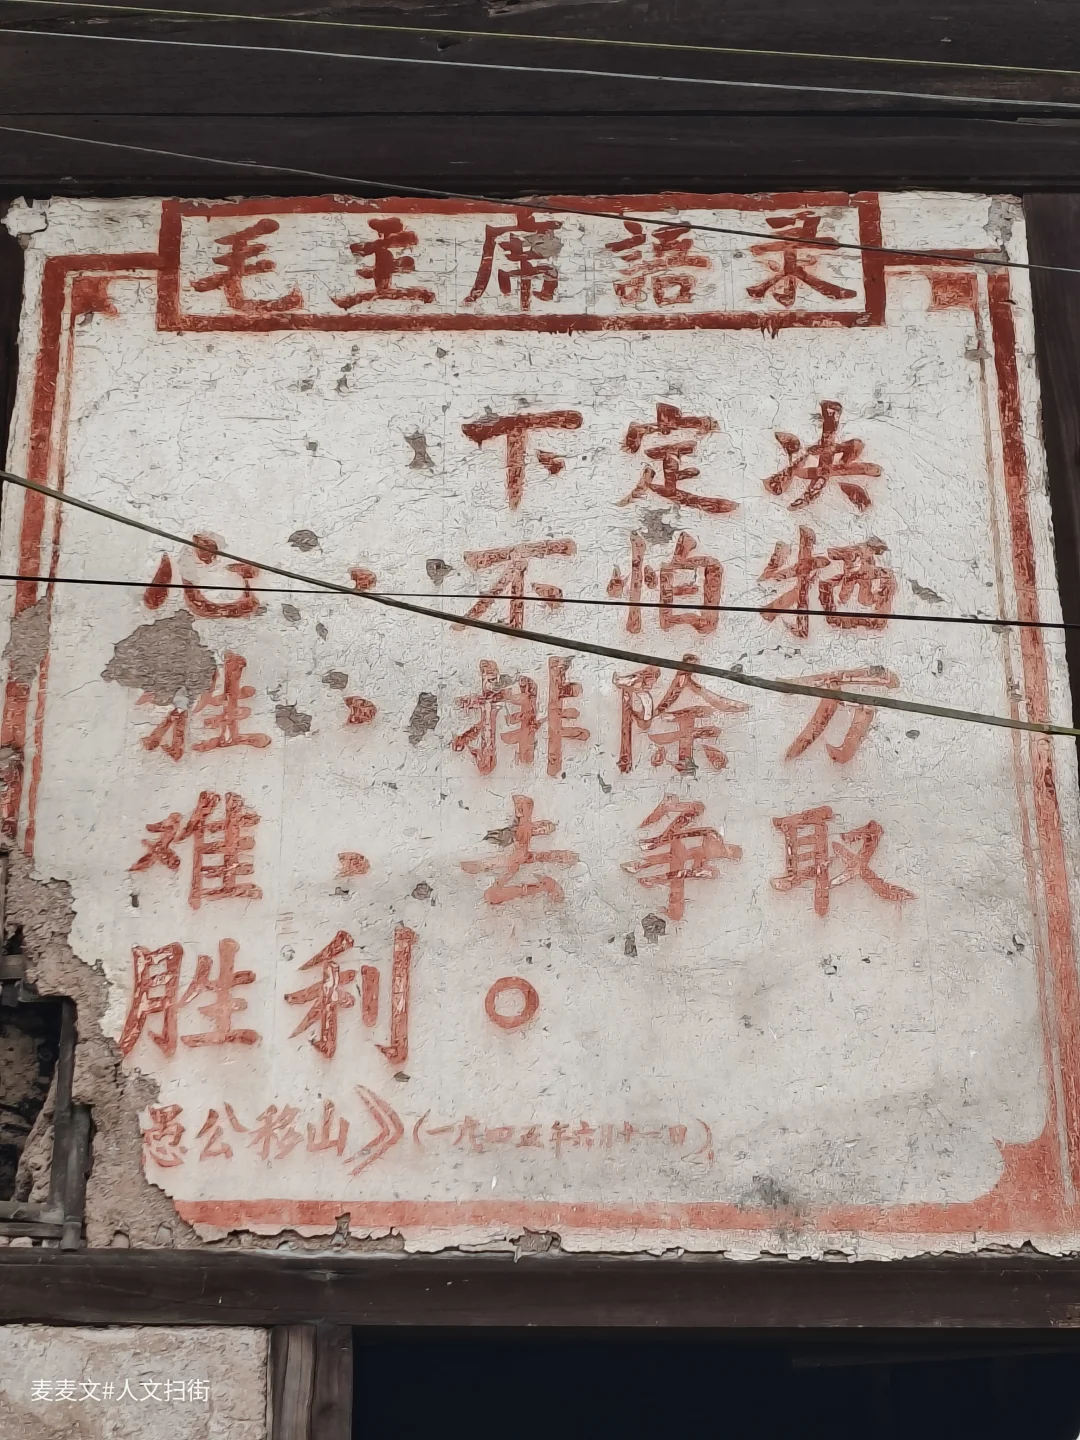 毛主席語录
下定决
心，不怕牺
牲，排除万
难，去争取
胜利。
愚公移山》(一九四五年六月十一日)
麦麦文#人文扫街